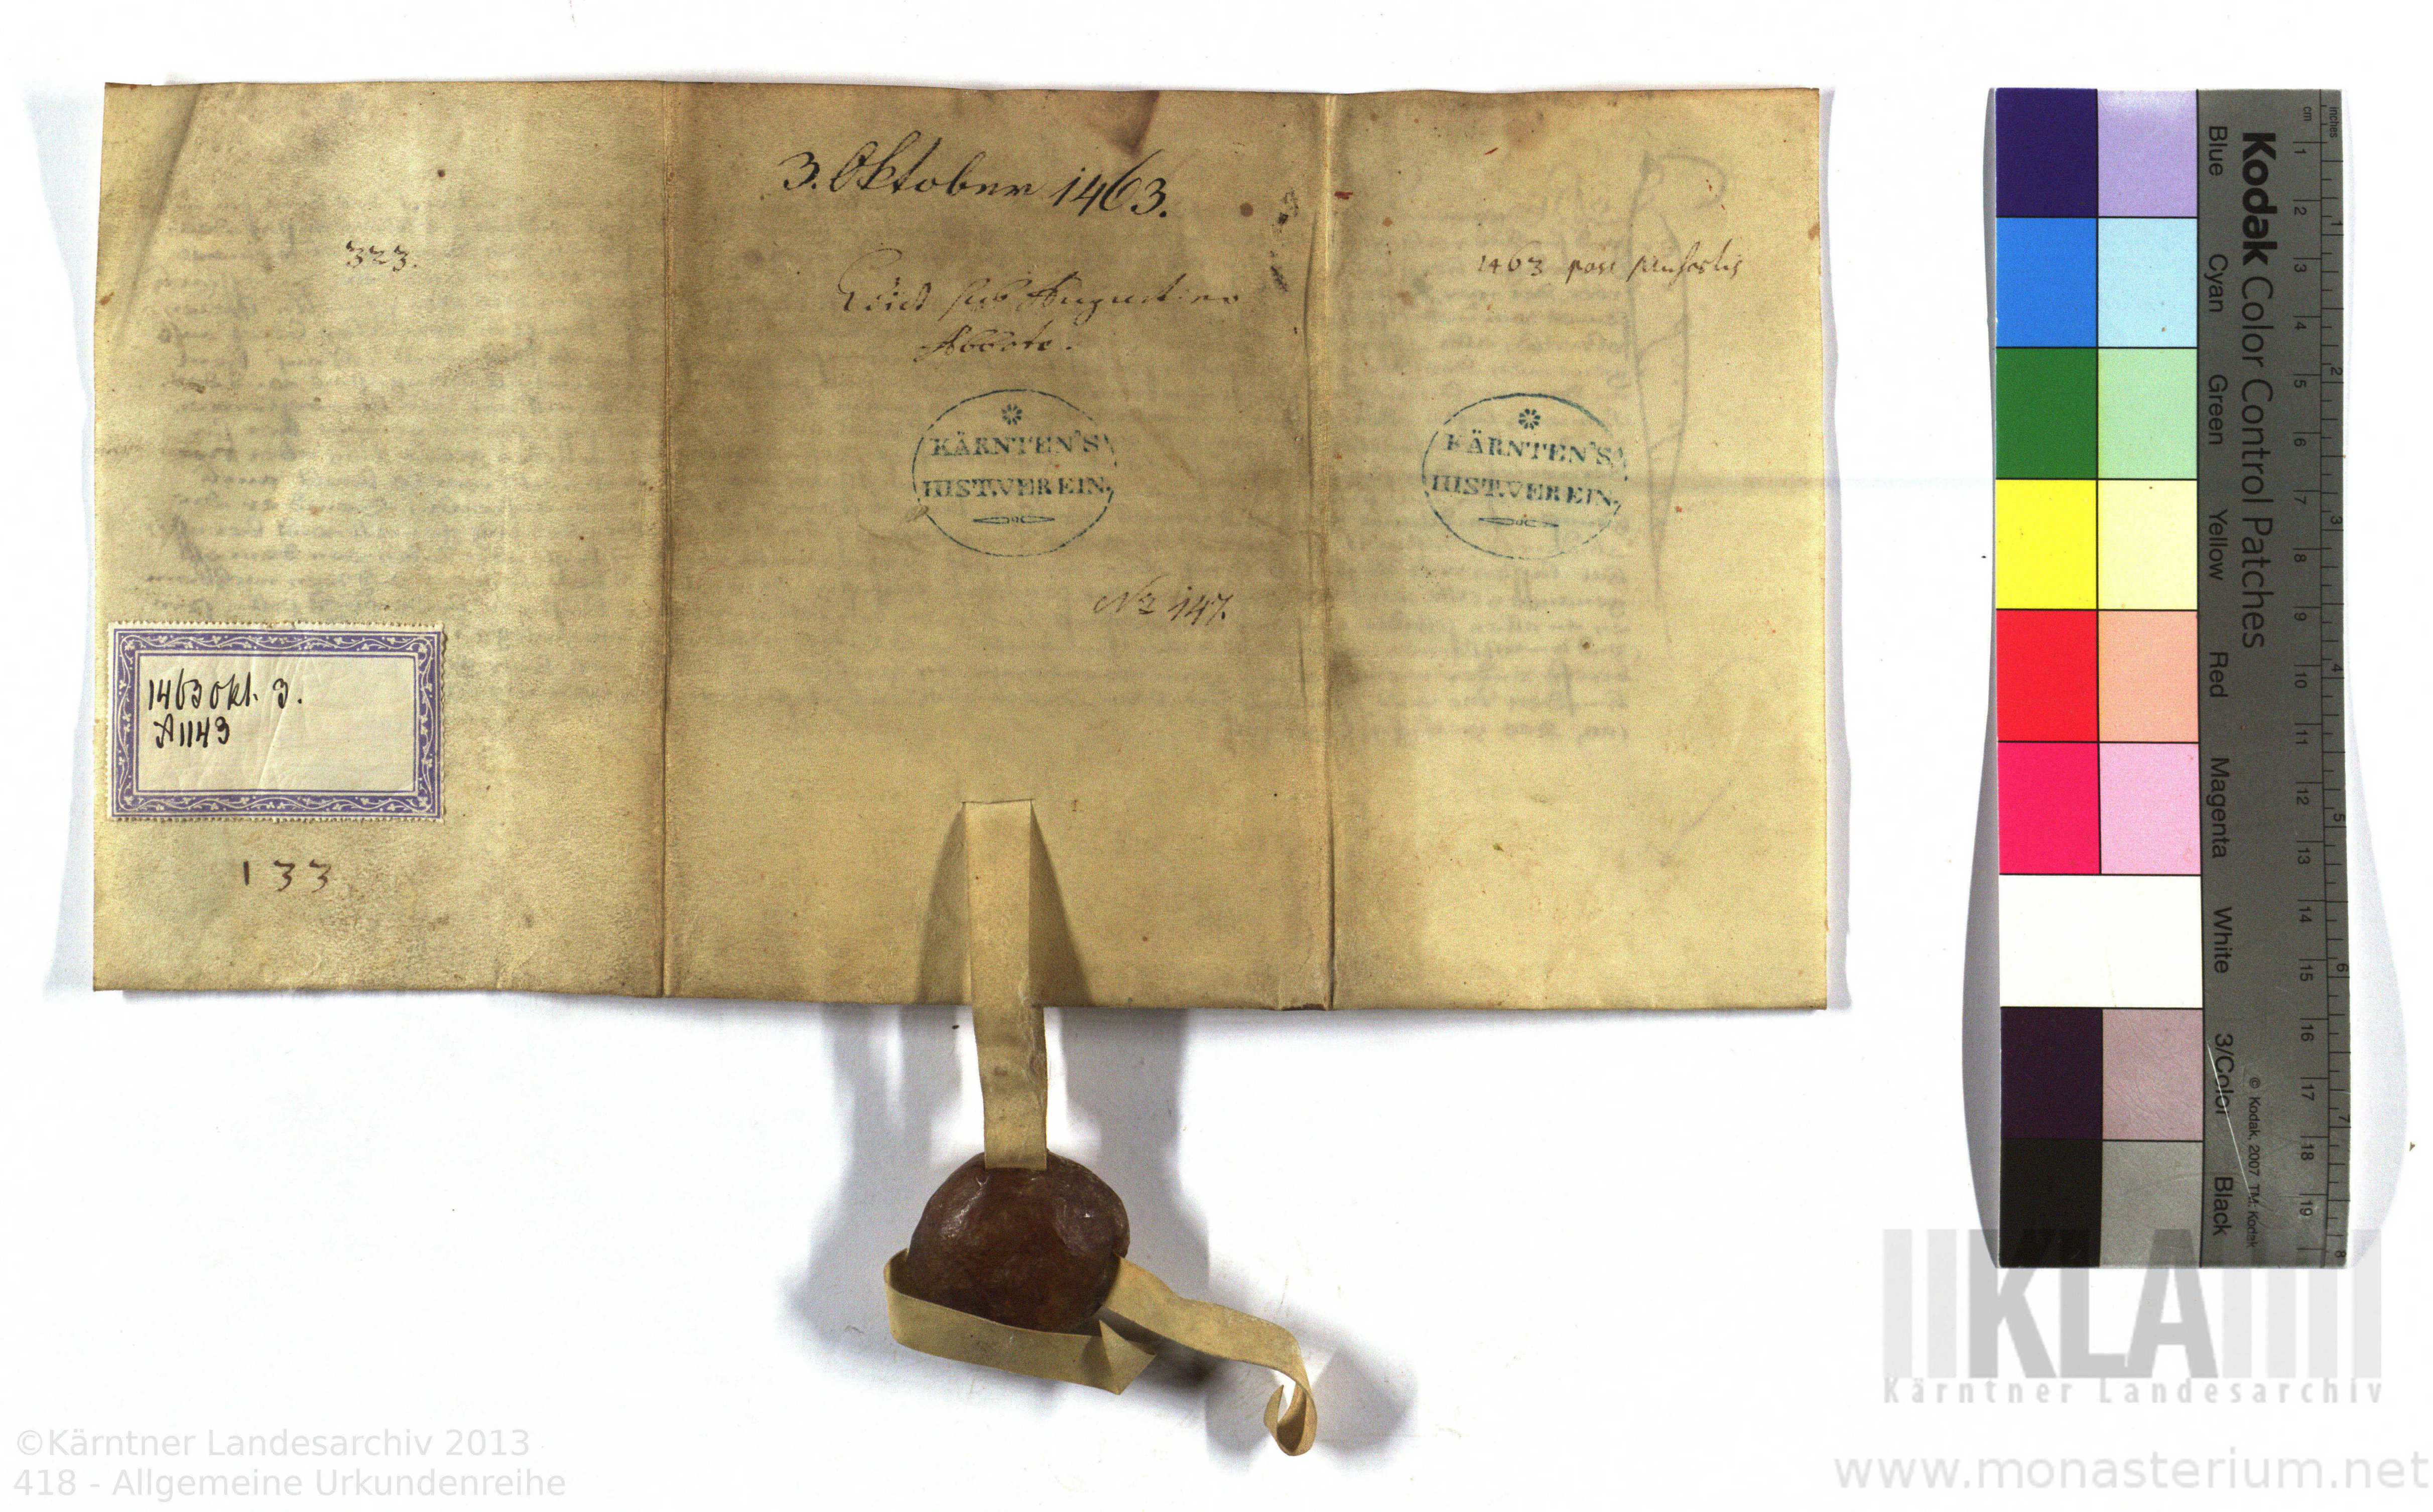 323.
1463 Okt. 3.
A 1143
133
3. Oktober 1463.
sub Augustino
Abbate.
KÄRNTEN'S
HIST.VEREIN.
No 147.
1463 post
KÄRNTEN'S
HIST.VEREIN.
Kodak Color Control Patches
Blue Cyan Green Yellow Red Magenta White 3/Color Black
© Kodak, 2007 TM: Kodak
cm 1 2 3 4 5 6 7 8 9 10 11 12 13 14 15 16 17 18 19
inches 1 2 3 4 5 6 7 8
KLA
Kärntner Landesarchiv
©Kärntner Landesarchiv 2013
418 - Allgemeine Urkundenreihe
www.monasterium.net